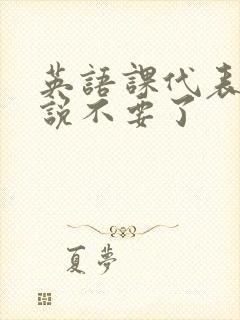 英語課代表
說不要了
夏夢